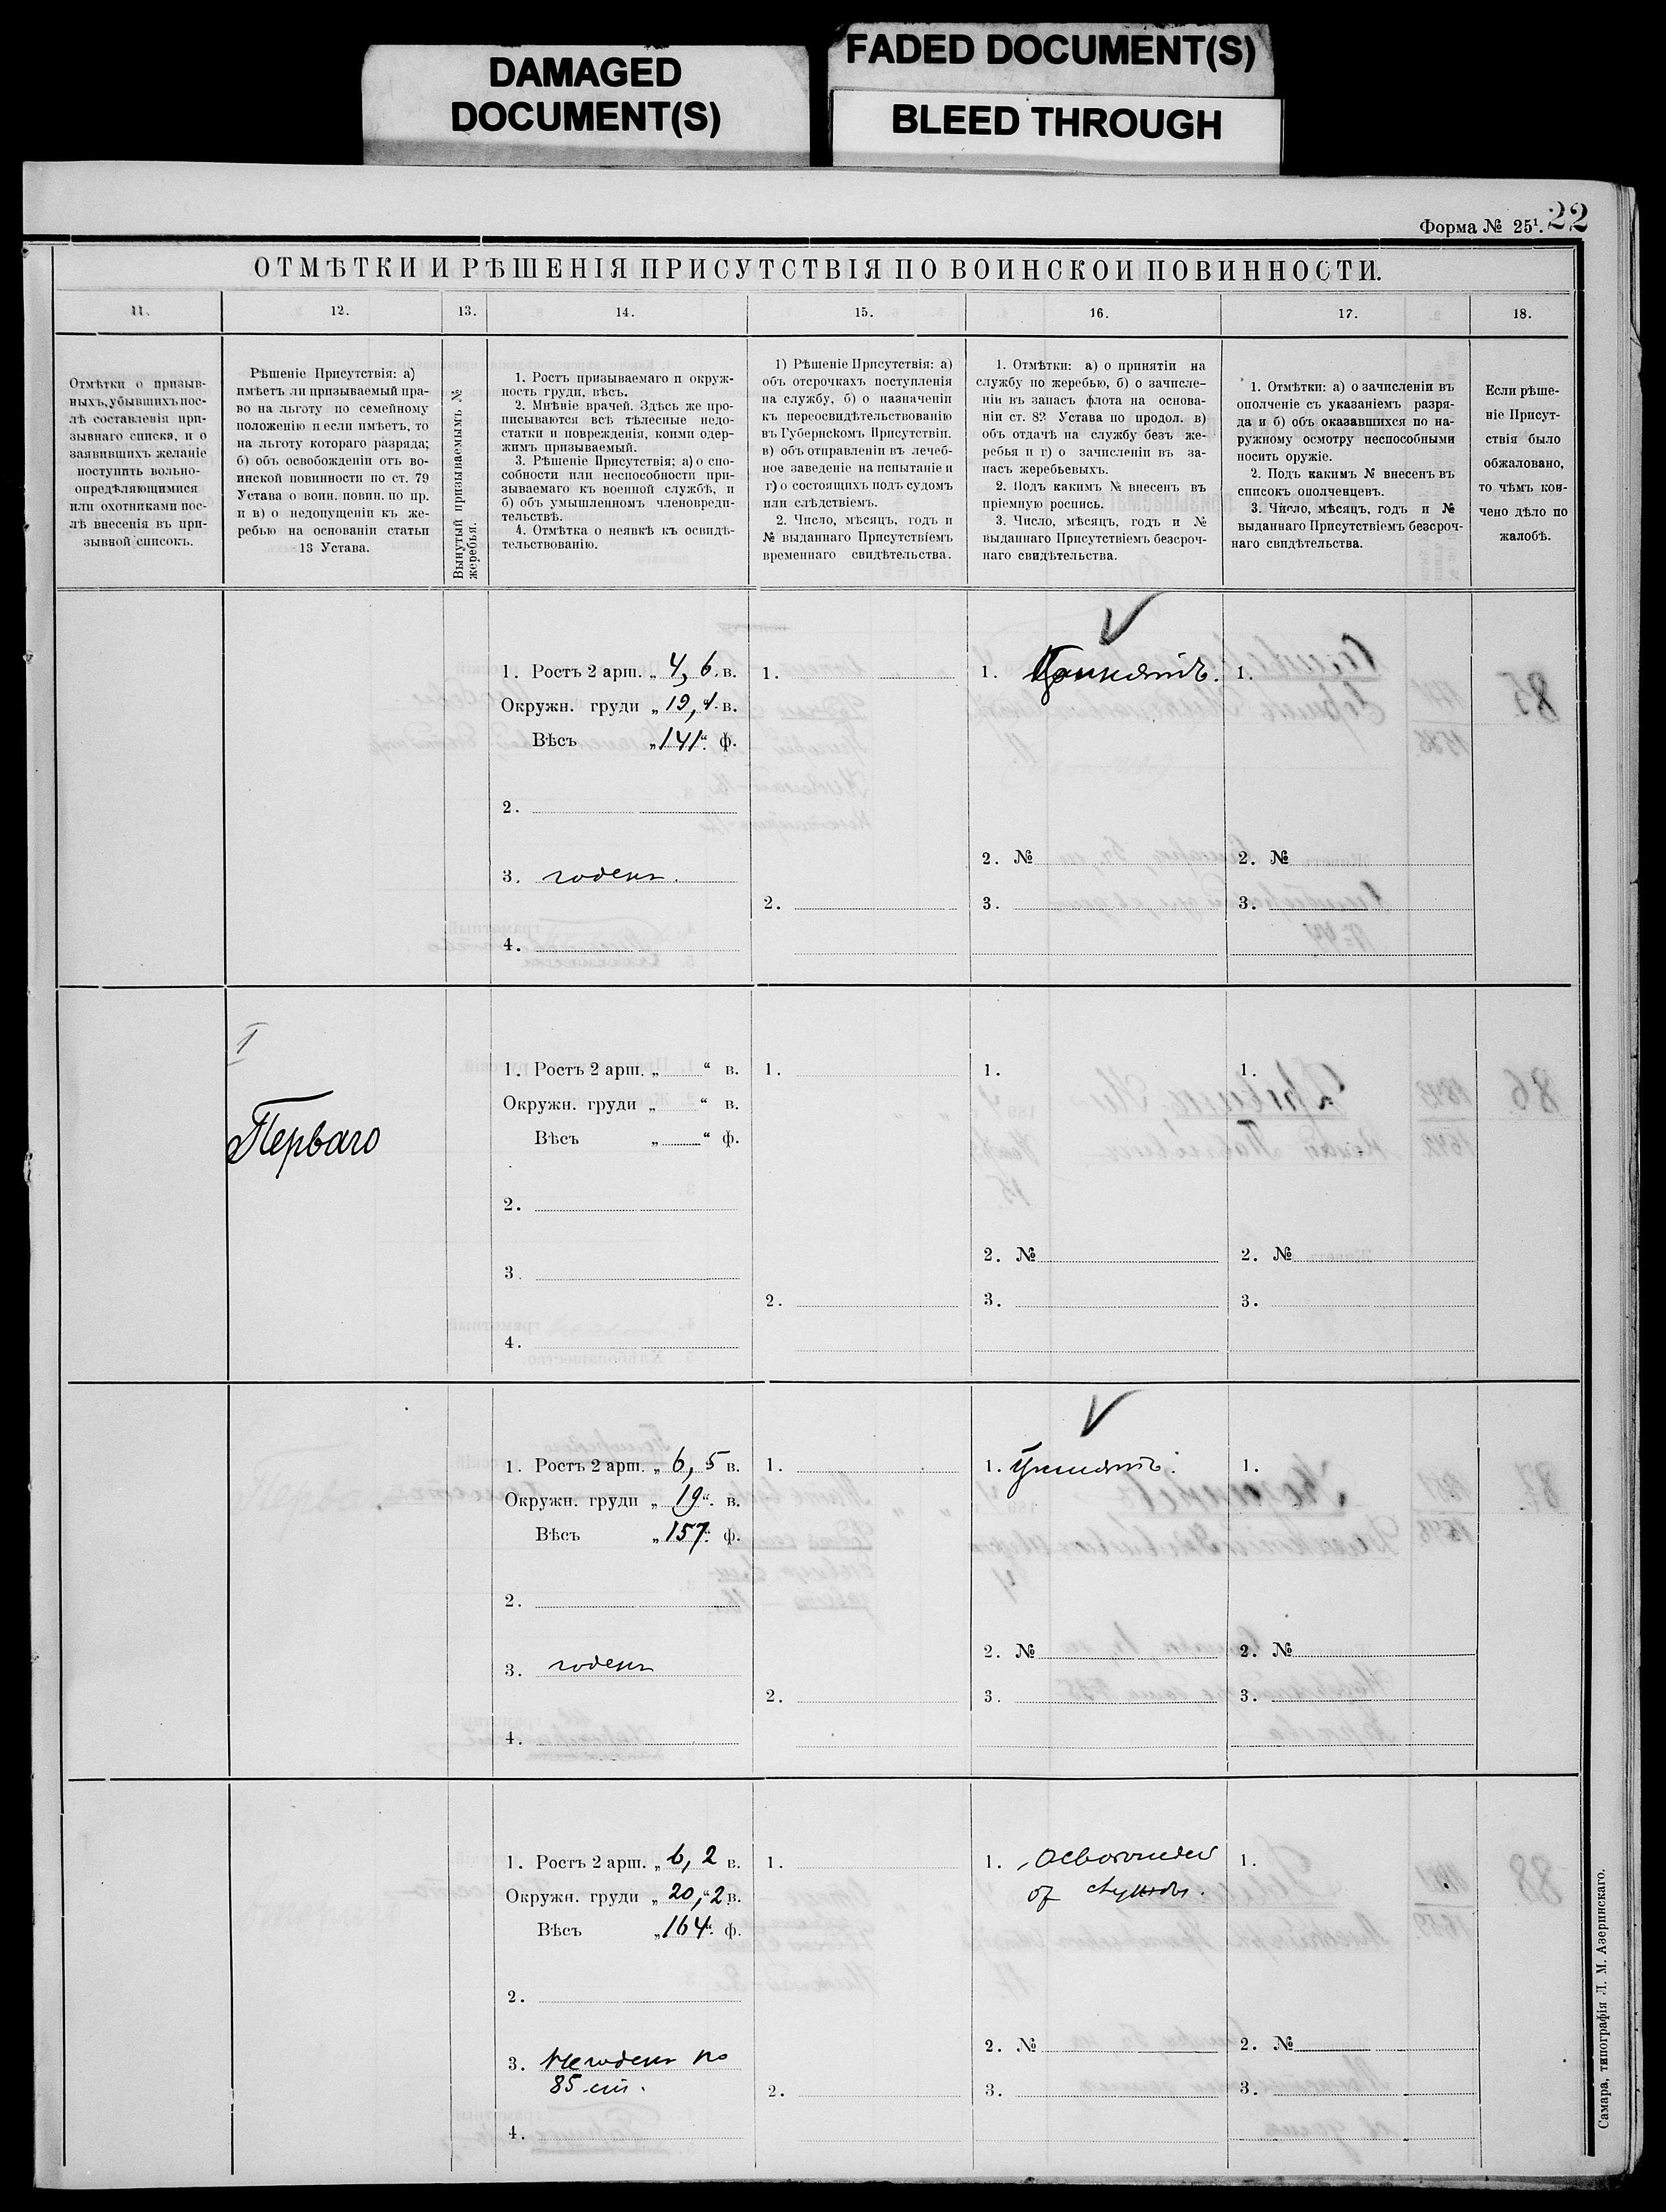 DAMAGED
DOCUMENT(S)
FADED DOCUMENT(S)
BLEED THROUGH
Форма № 25¹. 22
ОТМѢТКИ И РѢШЕНІЯ ПРИСУТСТВІЯ ПО ВОИНСКОЙ ПОВИННОСТИ.
11.
12.
13.
14.
15.
16.
17.
18.
Отмѣтки о призыв-
ныхъ, убывшихъ пос-
лѣ составленія при-
зывнаго списка, и о
заявившихъ желаніе
поступить вольно-
опредѣляющимися
или охотниками пос-
лѣ внесенія въ при-
зывной списокъ.
Рѣшеніе Присутствія: а)
имѣетъ ли призываемый пра-
во на льготу по семейному
положенію и если имѣетъ, то
на льготу котораго разряда;
б) объ освобожденіи отъ во-
инской повинности по ст. 79
Устава о воин. повин. по пр.
и в) о недопущеніи къ же-
ребью на основаніи статьи
13 Устава.
Вынутый призываемымъ №
жеребья.
1. Ростъ призываемаго и окруж-
ность груди, вѣсъ.
2. Мнѣніе врачей. Здѣсь же про-
писываются всѣ тѣлесные недо-
статки и поврежденія, коими одер-
жимъ призываемый.
3. Рѣшеніе Присутствія; а) о спо-
собности или неспособности при-
зываемаго къ военной службѣ, и
б) объ умышленномъ членовреди-
тельствѣ.
4. Отмѣтка о неявкѣ къ освидѣ-
тельствованію.
1) Рѣшеніе Присутствія: а)
объ отсрочкахъ поступленія
на службу, б) о назначеніи
къ переосвидѣтельствованію
въ Губернскомъ Присутствіи.
в) объ отправленіи въ лечеб-
ное заведеніе на испытаніе и
г) о состоящихъ подъ судомъ
или слѣдствіемъ.
2. Число, мѣсяцъ, годъ и
№ выданнаго Присутствіемъ
временнаго свидѣтельства.
1. Отмѣтки: а) о принятіи на
службу по жеребью, б) о зачисле-
ніи въ запасъ флота на основа-
ніи ст. 82 Устава по продол. в)
объ отдачѣ на службу безъ же-
ребья и г) о зачисленіи въ за-
пасъ жеребьевыхъ.
2. Подъ какимъ № внесенъ въ
пріемную роспись.
3. Число, мѣсяцъ, годъ и №
выданнаго Присутствіемъ безсроч-
наго свидѣтельства.
1. Отмѣтки: а) о зачисленіи въ
ополченіе съ указаніемъ разря-
да и б) объ оказавшихся по на-
ружному осмотру неспособными
носить оружіе.
2. Подъ какимъ № внесенъ въ
списокъ ополченцевъ.
3. Число, мѣсяцъ, годъ и №
выданнаго Присутствіемъ безсроч-
наго свидѣтельства.
Если рѣше-
ніе Присут-
ствія было
обжаловано,
то чѣмъ кон-
чено дѣло по
жалобѣ.
1. Ростъ 2 арш. „ 4, 6. в.
Окружн. груди „ 19, 4. в.
Вѣсъ „ 141 “ ф.
2.
3. годенъ.
4.
1.
2.
1. Принятъ.
2. №
3.
1.
2. №
3.
I
Перваго
1. Ростъ 2 арш. „ “ в.
Окружн. груди „ “ в.
Вѣсъ „ “ ф.
2.
3.
4.
1.
2.
1.
2. №
3.
1.
2. №
3.
1. Ростъ 2 арш. „ 6, 5 в.
Окружн. груди „ 19 “ в.
Вѣсъ „ 157 “ ф.
2.
3. годенъ
4.
1.
2.
1. Принятъ.
2. №
3.
1.
2. №
3.
1. Ростъ 2 арш. „ 6, 2 в.
Окружн. груди „ 20, 2 в.
Вѣсъ „ 164 “ ф.
2.
3. Негоденъ по
85 ст.
4.
1.
2.
1. Освобожденъ
от службы.
2. №
3.
1.
2. №
3.
Самара, типографія Л. М. Азеринскаго.